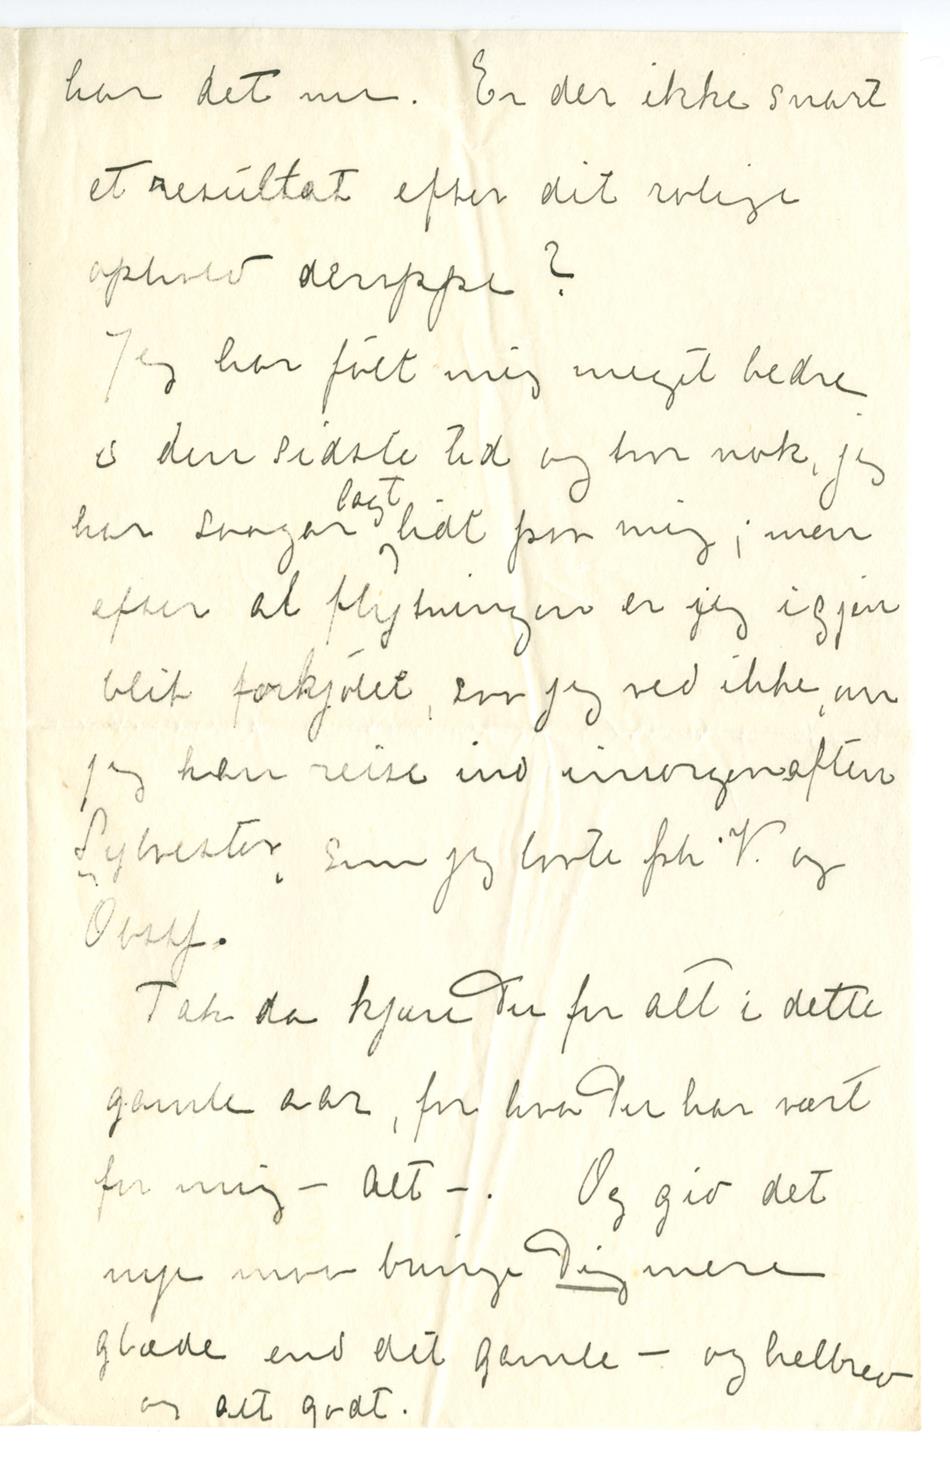 har det nu. Er der ikke snart
et resultat efter dit rolige
ophold deroppe?
Jeg har følt mig meget bedre
i den sidste tid og tror nok, jeg
har saagar lagt lidt paa mig; men
efter al flytningen er jeg igjen
blit forkjølet, saa jeg ved ikke, om
jeg kan reise ind imorgenaften
Sylvester, som jeg lovte frk. V. og
Tak da kjære Du for alt i dette
gamle aar, for hva Du har vært
for mig – alt –. Og giv det
nye maa bringe Dig mere
glæde end det gamle – og helbred
og alt godt.